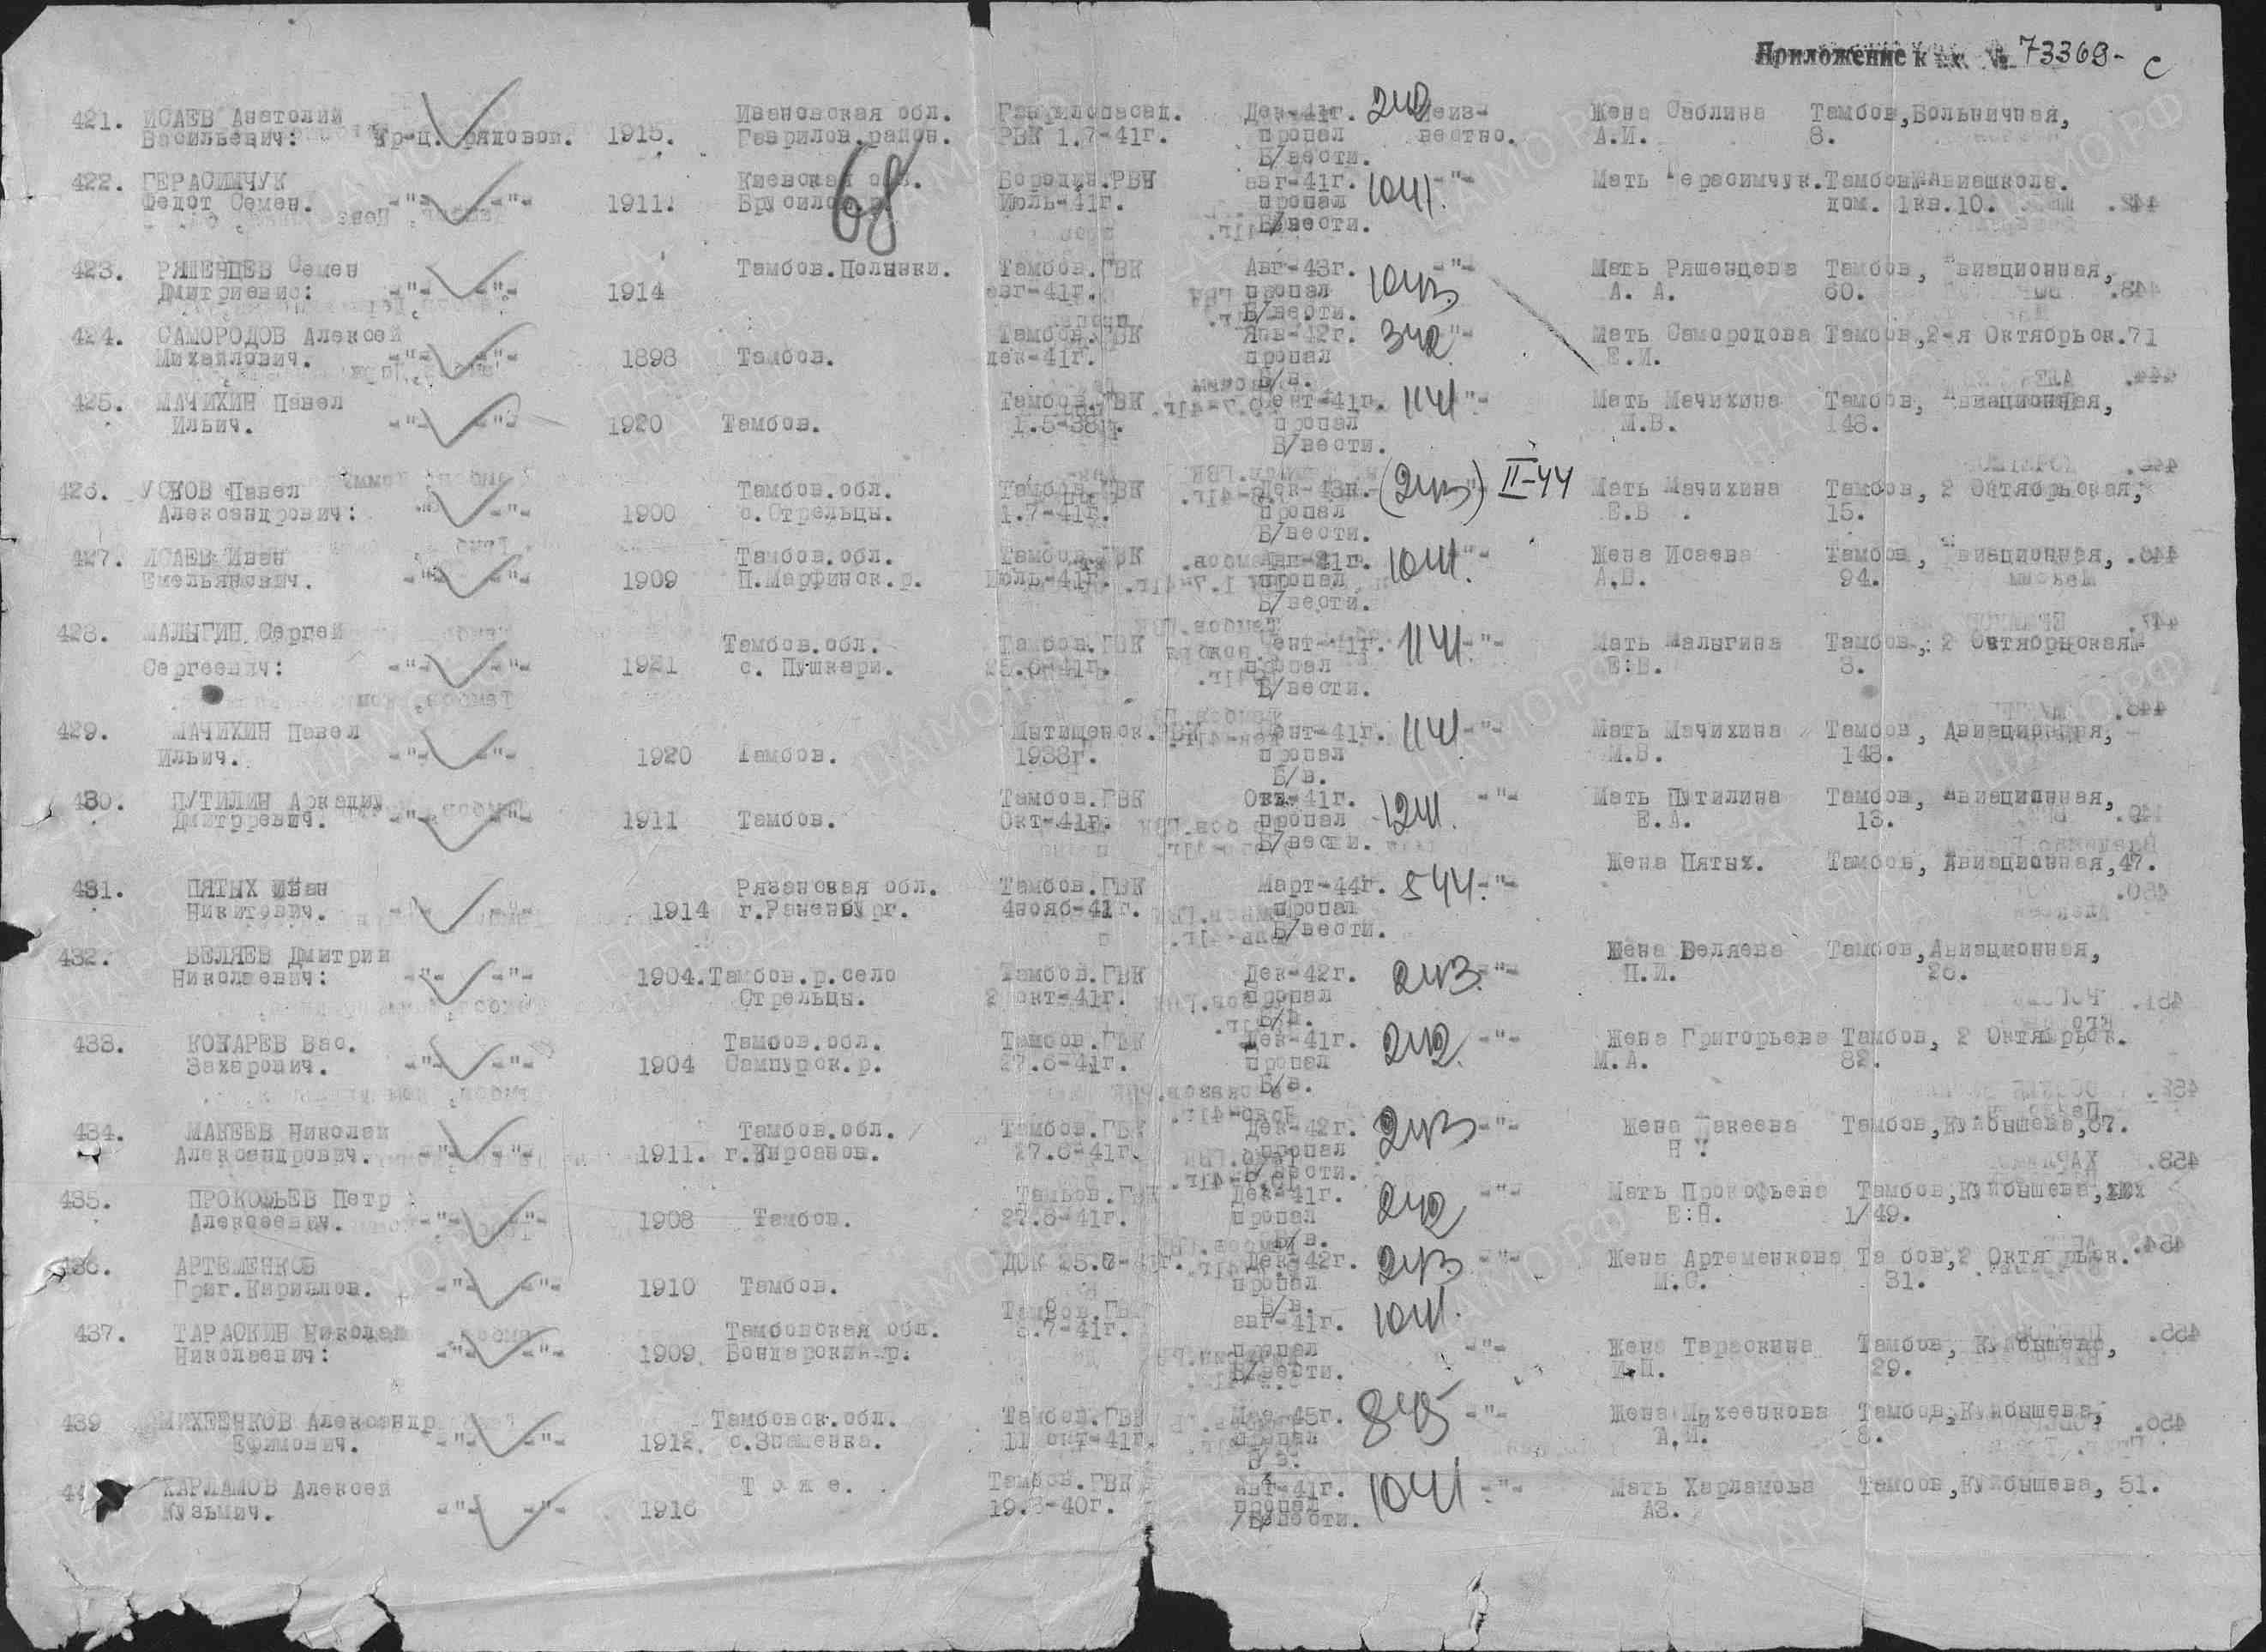 Приложение к вх. № 73369-с
421. ИСАЕВ Анатолий Ивановская обл. Гаврилопасад. Дек-41г. 242 Неиз- Жена Саблина Тамбов,Больничная,
Васильевич: кр-ц. рядовой. 1915. Гаврилов.район. РВК 1.7-41г. пропал вестно. А.И. 8.
Б/вести.
422. ГЕРАСИМЧУК Киевская обл. Бородин.РВК авг-41г. 1041. -"- Мать Герасимчук.Тамбов Авиашкола.
Федот Семен. -"- -"- 1911. Брусилов.р. Июль-41г. пропал дом. 1кв.10.
68
Б/вести.
423. РЯШЕНЦЕВ Семен Тамбов.Полынки. Тамбов.ГВК Авг-43г. 1043 -"- Мать Ряшенцева Тамбов, Авиационная,
Дмитриевис: -"- -"- 1914 авг-41г. пропал А. А. 60.
Б/вести.
424. САМОРОДОВ Алексей Тамбов.ГВК Янв-42г. 342 -"- Мать Самородова Тамбов,2-я Октябрьск.71
Михайлович. -"- -"- 1898 Тамбов. дек-41г. пропал Е.И.
Б/в.
425. МАЧИХИН Павел Тамбов.ГВК Сент-41г. 1141 -"- Мать Мачихина Тамбов, Авиационная,
Ильич. -"- -"- 1920 Тамбов. 1.5-38г. пропал М.В. 148.
Б/вести.
426. УСКОВ Павел Тамбов.обл. Тамбов.ГВК Дек-43г. (243) II-44 Мать Мачихина Тамбов, 2 Октябрьская,
Александрович: -"- -"- 1900 с.Стрельцы. 1.7-41г. пропал Е.В. 15.
Б/вести.
427. ИСАЕВ Иван Тамбов.обл. Тамбов.ГВК Авг-41г. 1041. -"- Жена Исаева Тамбов, Авиационная,
Емельянович. -"- -"- 1909 П.Марфинск.р. Июль-41г. пропал А.В. 94.
Б/вести.
428. МАЛЫГИН Сергей Тамбов.обл. Тамбов.ГВК Сент-41г. 1141 -"- Мать Малыгина Тамбов,: 2 Октябрьская
Сергеевич: -"- -"- 1921 с. Пушкари. 25.6-41г. пропал Е:В. 8.
Б/вести.
429. МАЧИХИН Павел Мытищенск.РВК Сент-41г. 1141 -"- Мать Мачихина Тамбов, Авиационная,
Ильич. -"- -"- 1920 Тамбов. 1938г. пропал М.В. 148.
Б/в.
430. ПУТИЛИН Аркадий Тамбов.ГВК Окт-41г. 1241. -"- Мать Путилина Тамбов, Авиационная,
Дмитревич. -"- -"- 1911 Тамбов. Окт-41г. пропал Е.А. 13.
Б/вести.
Жена Пятых. Тамбов, Авиационная,47.
431. ПЯТЫХ Иван Рязанская обл. Тамбов.ГВК Март-44г. 544. -"-
Никитович. -"- -"- 1914 г.Раненбург. 4нояб-41г. пропал
Б/вести.
432. БЕЛЯЕВ Дмитрий Жена Беляева Тамбов,Авиационная,
Николаевич: -"- -"- 1904.Тамбов.р.село Тамбов.ГВК Дек-42г. 243. -"- П.И. 26.
Стрельцы. 2 окт-41г. пропал
Б/в.
433. КОНАРЕВ Вас. Тамбов.обл. Тамбов.ГВК Дек-41г. 242. -"- Жена Григорьева Тамбов, 2 Октябрьск.
Захарович. -"- -"- 1904 Сампурск.р. 27.6-41г. пропал М.А. 82.
Б/в.
434. МАКЕЕВ Николай Тамбов.обл. Тамбов.ГВК Дек-42г. 243 -"- Жена Макеева Тамбов,Куйбышева,87.
Александрович. -"- -"- 1911. г.Кирсанов. 27.6-41г. пропал
Б/вести.
435. ПРОКОФЬЕВ Петр Тамбов.ГВК Дек-41г. 242 -"- Мать Прокофьева Тамбов,Куйбышева,
Алексеевич. -"- -"- 1908 Тамбов. 27.6-41г. пропал Е:Н. 1/49.
Б/в.
436. АРТЕМЕНКОВ ДОК 25.6-41г. Дек-42г. 243 -"- Жена Артеменкова Та бов,2 Октя рьск.
Григ.Кириллов. -"- -"- 1910 Тамбов. пропал М.С. 31.
Б/в.
437. ТАРАСКИН Николай Тамбовская обл. Тамбов.ГВК авг-41г. 1041.
Николаевич: -"- -"- 1909 Бондарский.р. 5.7-41г. пропал -"- Жена Тараскина Тамбов, Куйбышева,
Б/вести. И.П. 29.
439 МИХЕЕНКОВ Александр Тамбовск.обл. Тамбов.ГВК Мая-45г. 845 -"- Жена Михеенкова Тамбов,Куйбышева,
Ефимович. -"- -"- 1912. с.Знаменка. 11 окт-41г. пропал А.И. 8.
Б/в.
44 ХАРЛАМОВ Алексей Т о ж е. Тамбов.ГВК Авг-41г. 1041 -"- Мать Харламова Тамбов,Куйбышева, 51.
Кузьмич. -"- -"- 1916 19.8-40г. пропал АЗ.
Б/вести.